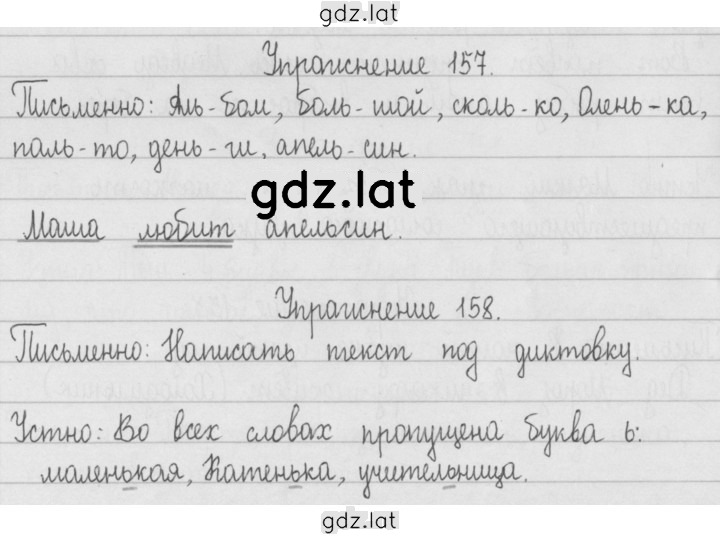 gdz.lat
Упражнение 157.
Письменно: Аль-бом, боль-шой, сколь-ко, Олень-ка,
паль-то, день-ги, апель-син.
gdz.lat
Маша любит апельсин.
Упражнение 158.
Письменно: Написать текст под диктовку.
Устно: Во всех словах пропущена буква ь:
маленькая, Катенька, учительница.
gdz.lat